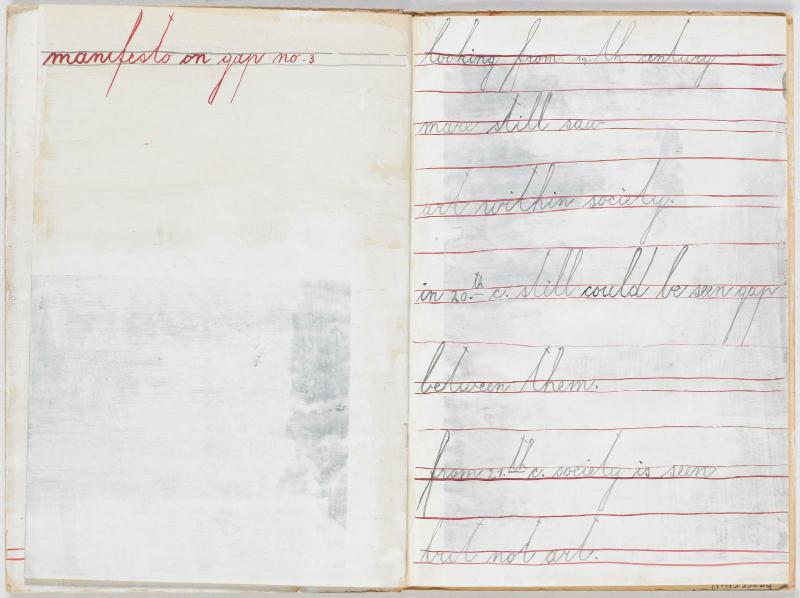 manifesto on gap no. 3
looking from 19. th century
marx still saw
art within society.
in 20.th c. still could be seen gap
between them.
from 21.th c. society is seen
but not art.